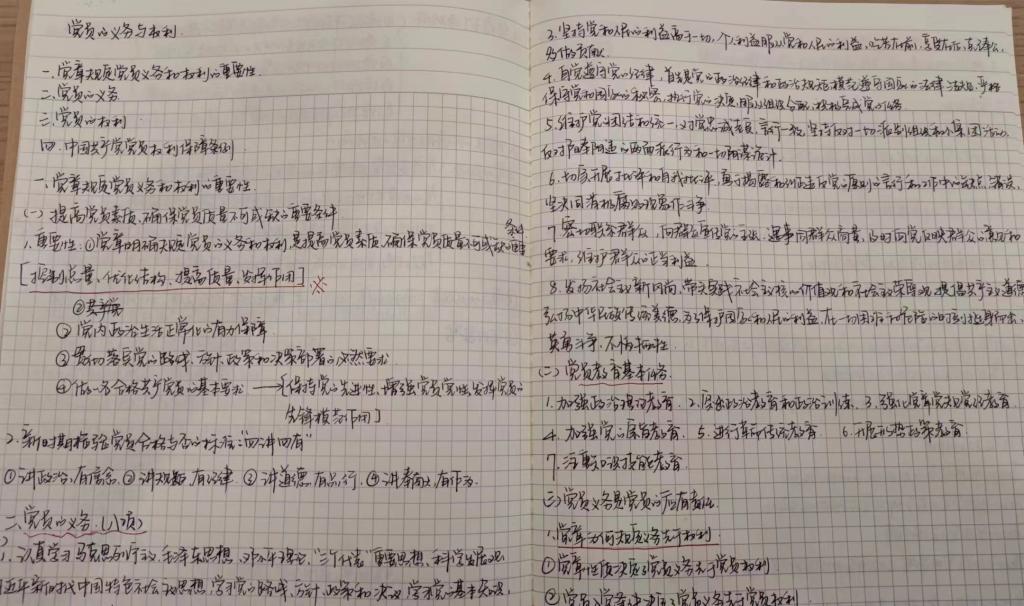 党员的义务与权利
一、党章规定党员义务和权利的重要性.
二、党员的义务
三、党员的权利
四、中国共产党党员权利保障条例
一、党章规定党员义务和权利的重要性.
(一) 提高党员素质、确保党员质量不可或缺的重要条件
1、重要性:①党章明确规定党员的义务和权利,是提高党员素质、确保党员质量不可或缺的重要
条件
[控制总量、优化结构、提高质量、发挥作用] ※
②党内政治生活正常化的有力保障
③贯彻落实党的路线、方针、政策和决策部署的必然要求
④做一名合格共产党员的基本要求 →[保持党的先进性、增强党员党性、发挥党员的
先锋模范作用]
2、新时期检验党员合格与否的标准:"四讲四有"
①讲政治、有信念 ②讲规矩、有纪律 ③讲道德、有品行. ④讲奉献、有作为.
二、党员的义务.(八项)
1、认真学习马克思列宁主义、毛泽东思想、邓小平理论、"三个代表"重要思想、科学发展观、
习近平新时代中国特色社会主义思想,学习党的路线、方针、政策和决议,学习党的基本知识,
3、坚持党和人民的利益高于一切,个人利益服从党和人民的利益,吃苦在前,享受在后,克己奉公,
多做贡献.
4、自觉遵守党的纪律,首先是党的政治纪律和政治规矩,模范遵守国家的法律法规,严格
保守党和国家的秘密,执行党的决定,服从组织分配,积极完成党的任务
5、维护党的团结和统一,对党忠诚老实,言行一致,坚决反对一切派别组织和小集团活动,
反对阳奉阴违的两面派行为和一切阴谋诡计.
6、切实开展批评和自我批评,勇于揭露和纠正违反党的原则的言行和工作中的缺点、错误,
坚决同消极腐败现象作斗争
7、密切联系群众,向群众宣传党的主张,遇事同群众商量,及时向党反映群众的意见和
要求,维护群众的正当利益.
8、发扬社会主义新风尚,带头实践社会主义核心价值观和社会主义荣辱观,提倡共产主义道德,
弘扬中华民族传统美德,为了保护国家和人民的利益,在一切困难和危险的时刻挺身而出,
英勇斗争,不怕牺牲.
(二) 党员教育基本任务.
1、加强政治理论教育. 2、突出政治教育和政治训练. 3、强化党章党规党纪教育
4、加强党的宗旨教育. 5、进行革命传统教育. 6、开展形势政策教育.
7、注重知识技能教育.
(三) 党员义务是党员的应有责任
1、党章为何规定义务先于权利
①党章性质决定了党员义务先于党员权利
②党员入党条件决定了党员义务先于党员权利